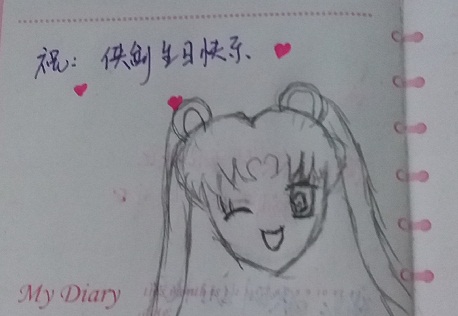 祝：侠剑生日快乐
My Diary